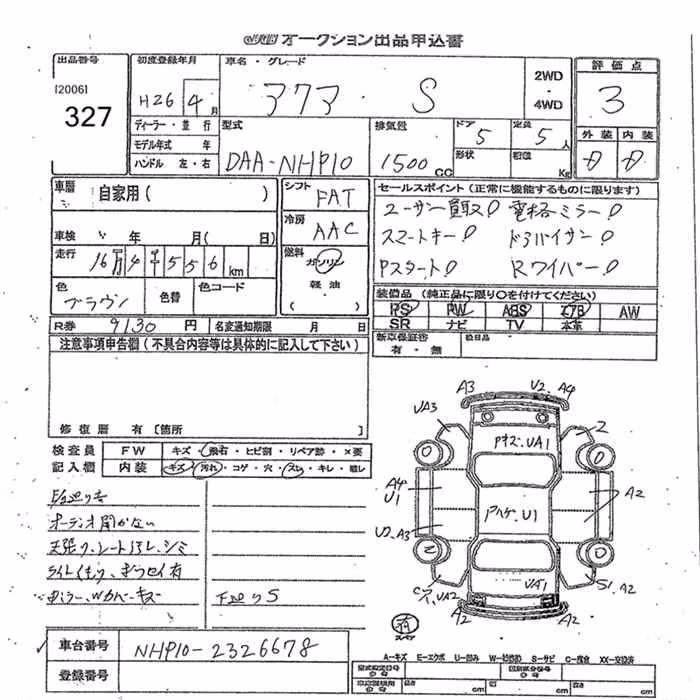 JU オークション出品申込書
出品番号
[2006]
327
初度登録年月
H26 4 月
車名・グレード
アクア S
2WD
・
4WD
評価点
3
外装 内装
ディーラー・並行
モデル年式 年
ハンドル 左・右
型式
DAA-NHP10
排気量
1500 CC
ドア
5
定員
5 人
形状
積載 Kg
車歴
自家用( )
車検 年 月( 日)
走行
16万4千556 km
色
ブラウン
色替
色コード
シフト
FAT
冷房
AAC
燃料
ガソリン
・
軽油
( )
セールスポイント(正常に機能するものに限ります)
ユーザー買取! 電格ミラー!
スマートキー! ドラバイザー!
Pスタート! Rワイパー!
装備品(純正品に限り○を付けてください)
PS PW ABS エアB AW
SR ナビ TV 本革
新車保証書
有・無
後日品
R券 9130 円 名変通知期限 月 日
注意事項申告欄(不具合内容等は具体的に記入して下さい)
修復歴 有[箇所
検査員
記入欄
FW キズ・飛石・ヒビ割・リペア跡・×要
内装 キズ・汚れ・コゲ・穴・スレ・キレ・欠し
オーディオ開かない
天張り、シートヨゴレ、シミ
ライトくもり、キツキ有
下廻りS
車台番号 NHP10-2326678
登録番号
A3 U2. A4
UA3 2
Pキズ.UA1
A4
U1
Pハゲ.U1
A2
U2. A3
0 0
2 0
UA2 UA1 S1. A2
A2 A2
有
スペア
A−キズ E−エクボ U−凹み W−補修跡 S−サビ C−腐食 XX−交換済
型式指定番号
類別区分番号
長さ cm 幅 cm 高さ cm